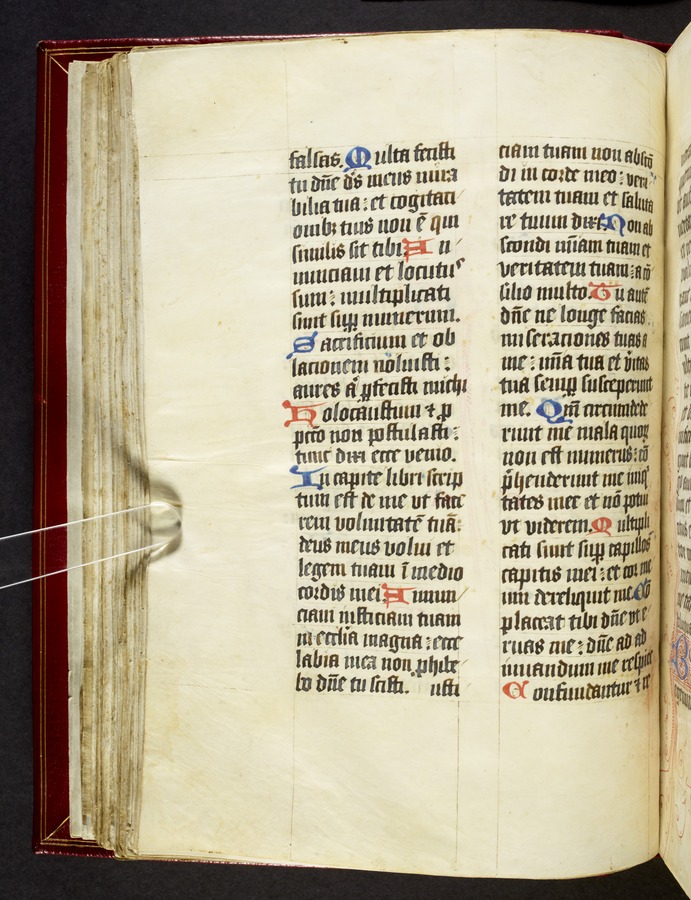 falsas. Multa fecisti
tu dñe ds̄ meus mira
bilia tua: et cogitati
onibꝫ tuis non ē qui
similis sit tibi. An
nunciaui et locutus
sum: multiplicati
sunt suꝑ numerum.
Sacrificium et ob
lacionem noluisti:
aures aū ꝑfecisti michi
Holocaustum ⁊ ꝓ
pctō non postulasti:
tunc dixi ecce venio.
In capite libri scrip
tum est de me vt face
rem voluntatē tuā:
deus meus volui et
legem tuam ī medio
cordis mei. Annun
ciaui iusticiam tuam
in ecclīa magna: ecce
labia mea non ꝓhibe
bo dñe tu scisti. Iusti
ciam tuam non abscō
di in corde meo: veri
tatem tuam et saluta
re tuum dixi. Non ab
scondi mīam tuam et
veritatem tuam: a cō
silio multo. Tu autē
dñe ne longe facias
miseraciones tuas a
me: mīa tua et v̄itas
tua semꝑ susceperunt
me. Qm̄ circumdede
runt me mala quoꝝ
non est numerus: cō
p̄henderunt me iniq̄
tates mee et nō potui
vt viderem. Multipli
cati sunt suꝑ capillos
capitis mei: et cor me
um dereliquit me. Cō
placeat tibi dñe vt e
ruas me: dñe ad ad
iuuandum me respice
Confundantur ⁊ re